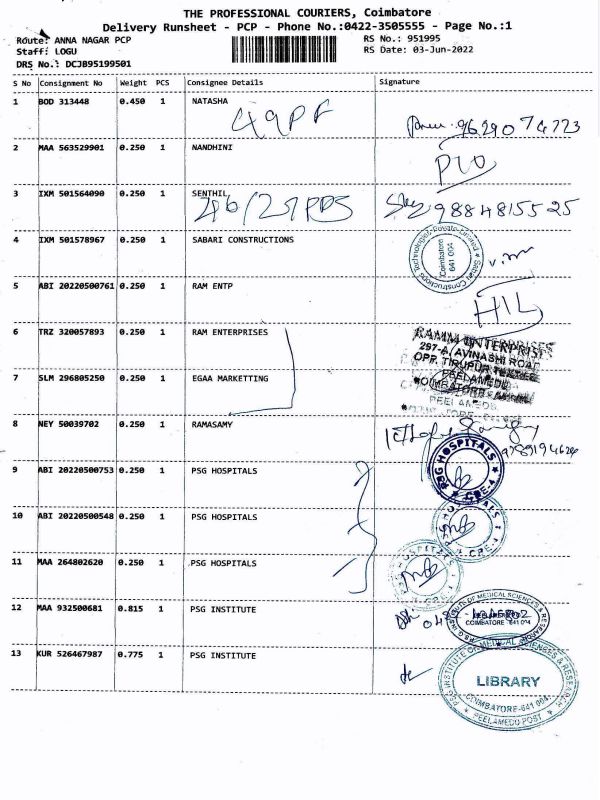 THE PROFESSIONAL COURIERS, Coimbatore
Delivery Runsheet - PCP - Phone No.:0422-3505555 - Page No.:1
Route: ANNA NAGAR PCP
RS No.: 951995
Staff: LOGU
RS Date: 03-Jun-2022
DRS No.: DCJB95199501
S No Consignment No Weight PCS Consignee Details Signature
1 BOD 313448 0.450 1 NATASHA
9629074723
2 MAA 563529901 0.250 1 NANDHINI
3 IXM 501564090 0.250 1 SENTHIL
9884815525
4 IXM 501578967 0.250 1 SABARI CONSTRUCTIONS
Sabari Constructions Technologies Private Limited
Coimbatore
641 004
5 ABI 20220500761 0.250 1 RAM ENTP
HIL
6 TRZ 320057893 0.250 1 RAM ENTERPRISES
RAMM ENTERPRISES
297-A, AVINASHI ROAD
OPP. TIRUPUR
PEELAMEDU
COIMBATORE
7 SLM 296805250 0.250 1 EGAA MARKETTING
8 NEY 50039702 0.250 1 RAMASAMY
9 ABI 20220500753 0.250 1 PSG HOSPITALS
PSG HOSPITALS
CBE-4
10 ABI 20220500548 0.250 1 PSG HOSPITALS
PSG HOSPITALS
CBE-4
11 MAA 264802620 0.250 1 PSG HOSPITALS
PSG HOSPITALS
CBE-4
12 MAA 932500681 0.815 1 PSG INSTITUTE
COIMBATORE - 641 004
13 KUR 526467987 0.775 1 PSG INSTITUTE
PSG INSTITUTE OF MEDICAL SCIENCES & RESEARCH
LIBRARY
COIMBATORE-641 004.
PEELAMEDU POST